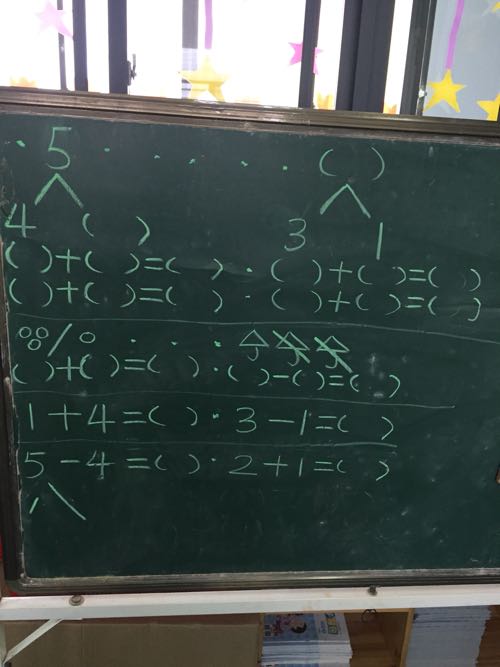 · 5 · · · · · ( )
4 ( ) 3 1
( )+( )=( ) · ( )+( )=( )
( )+( )=( ) · ( )+( )=( )
( )+( )=( ) · ( )-( )=( )
1+4=( ) · 3-1=( )
5-4=( ) · 2+1=( )